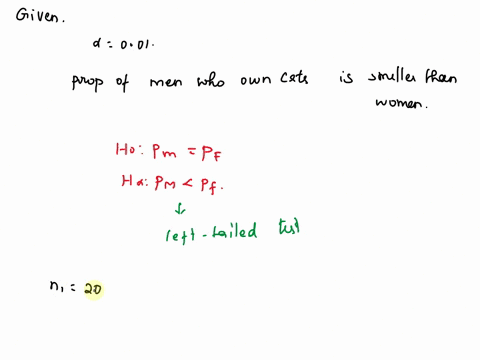 Given.
α = 0.01.
prop of men who own cats is smaller than
women.
Ho: PM = PF
Ha: PM < Pf.
left-tailed test
n1 = 20